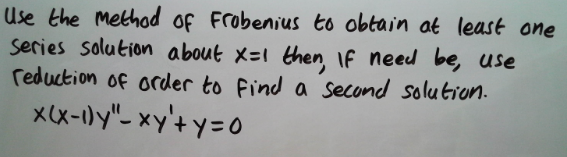 Use the Method of Frobenius to obtain at least one
series solution about x=1 then, if need be, use
reduction of order to find a second solution.
x(x-1)y"- xy'+y=0